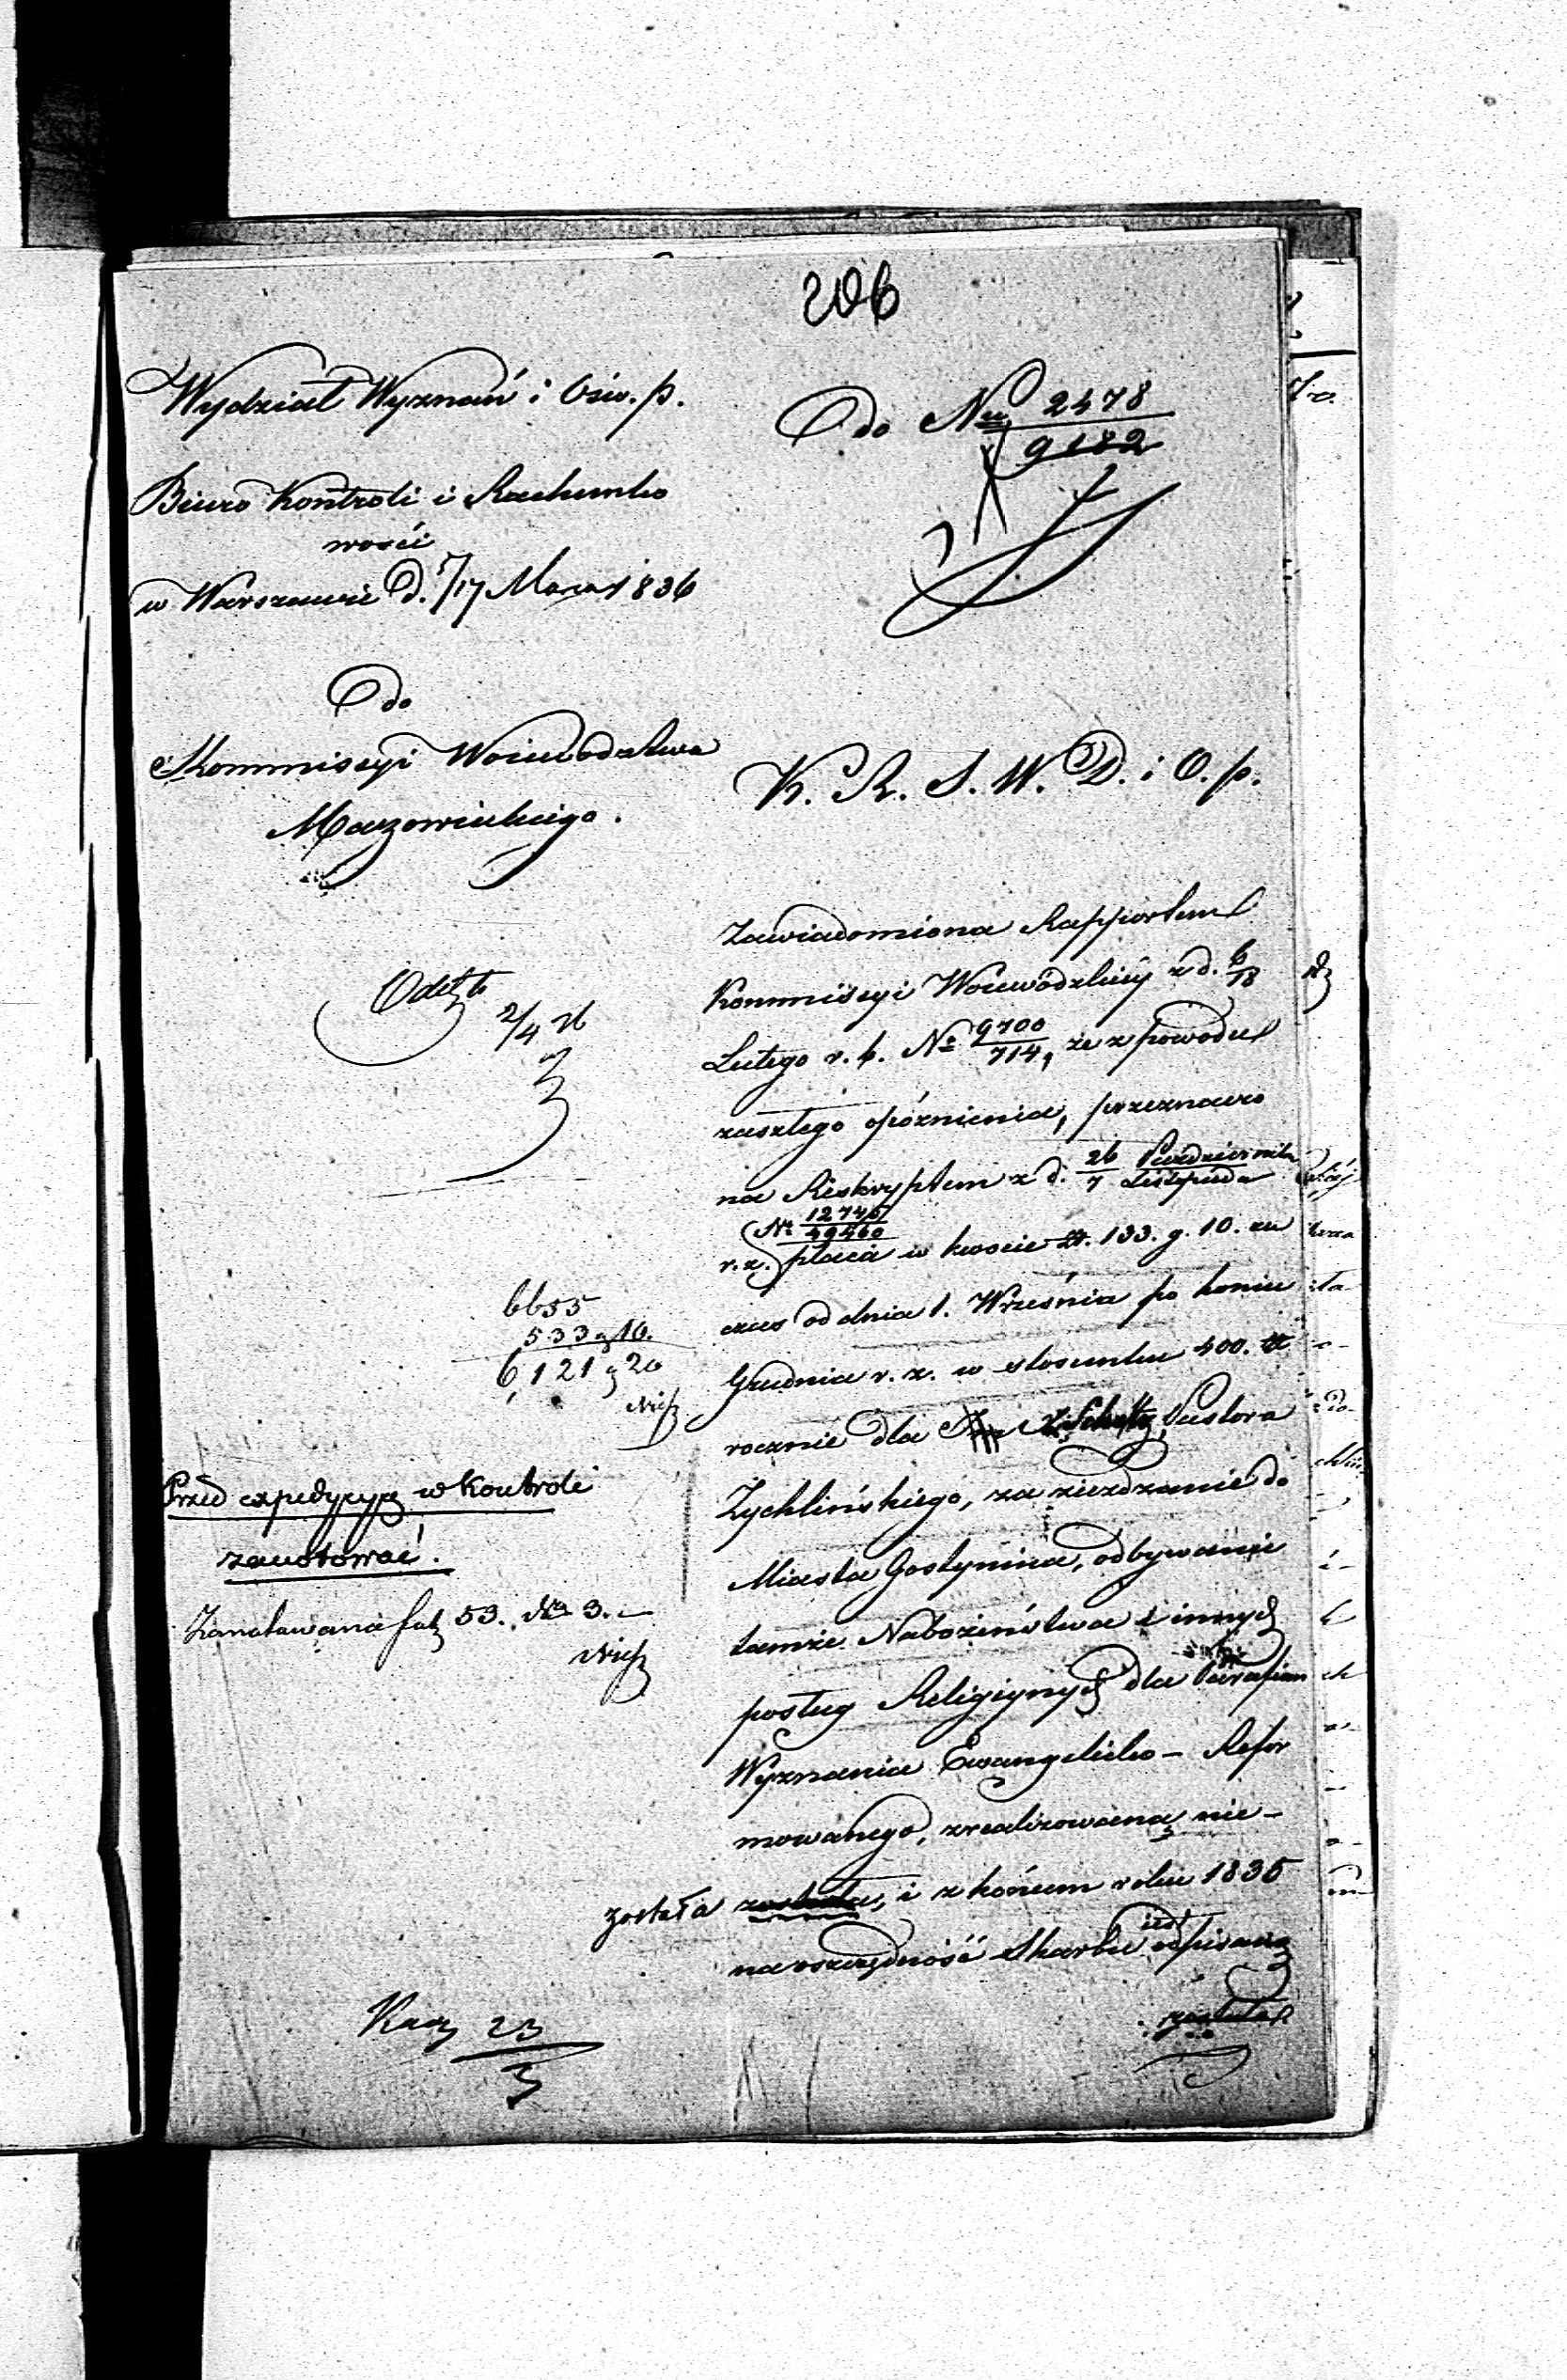 206
Wydział Wyznań i Ośw. p.
Do Nru 2478
9182
Biuro Kontroli i Rachunko
wości
w Warszawie D. 5/17 Marca 1836
Do
Kommissyi Woiewodztwa
Mazowieckiego.
K. R. S. W. D. i O. p.
Zawiadomiona Rapportem
Kommissyi Woiewódzkiey z d. 6/18
Lutego r. b. No 9700/714, że z powodu
zaszłego opóznienia, przeznaczo
na Reskryptem z d. 26 Pazdziernika
7 Listopada
No 12745
49460
r. z. płaca w kwocie zł. 133. g. 10. za
czas od dnia 1. Września po koniec
Grudnia r. z. w stosunku 400. zł
rocznie dla Pastora
Zychlińskiego, za ziezdzanie do
Miasta Gostynina, odbywanie
tamże Nabożeństwa i innych
posług Religiynych dla Parafian
Wyznania Ewangelicko - Refor
mowanego, zrealizowaną nie -
została zostala, i z końcem roku 1835
na oszczędność Skarbu iest odpisaną
została
2/4 36
6655
533 g 10.
6,121 g 20
Przed expedycyą w Kontroli
zanotować.
Zanotowana fol 53. No 3. -
23